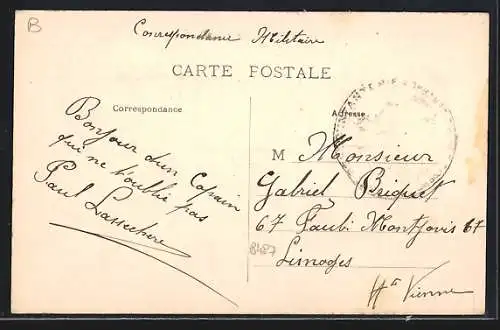 B
Correspondance Militaire
CARTE POSTALE
Correspondance
Adresse
Bonjour d'un Copain
qui ne t'oublie pas
Paul
M Monsieur
Gabriel Briquet
67 Faubg Montjovis 67
Limoges
Hte Vienne
8487